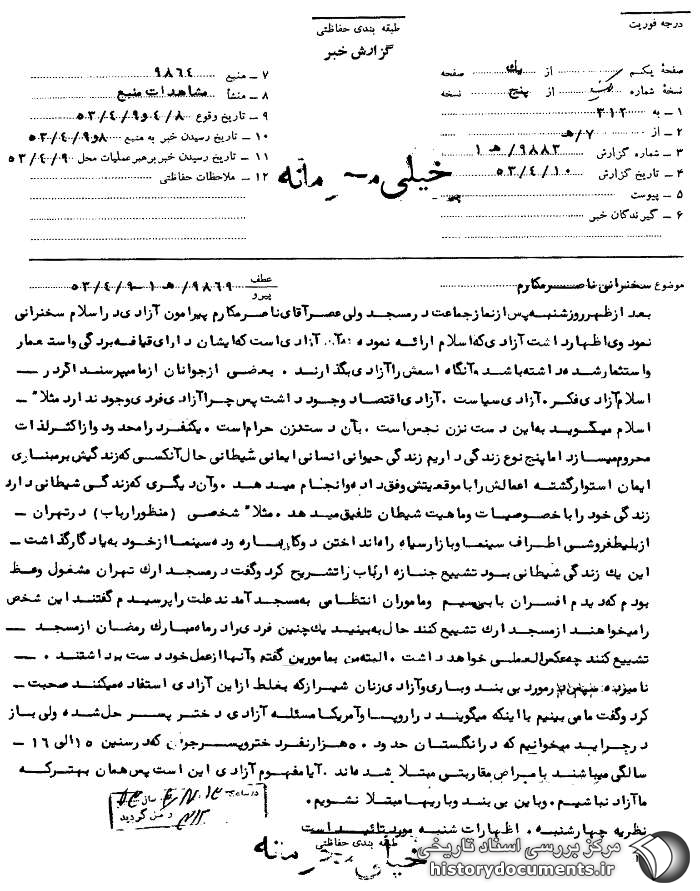 درجه فوریت
طبقه بندی حفاظتی
گزارش خبر
صفحهٔ یکم از یک صفحه
نسخهٔ شماره از پنج نسخه
۱ ــ به ۳۱۲
۲ ــ از ۷/هـ
۳ ــ شماره گزارش ۹۸۸۳/هـ ۱
۴ ــ تاریخ گزارش ۵۳/۴/۱۰
۵ ــ پیوست
۶ ــ گیرندگان خبر
۷ ــ منبع ۹۸۶۴
۸ ــ منشأ مشاهدات منبع
۹ ــ تاریخ وقوع ۸/۴و۵۳/۴/۹
۱۰ ــ تاریخ رسیدن خبر به منبع ۸و۵۳/۴/۹
۱۱ ــ تاریخ رسیدن خبر برهبر عملیات محل ۵۳/۴/۹
۱۲ ــ ملاحظات حفاظتی
خیلی محرمانه
موضوع سخنرانی ناصر مکارم
عطف
پیرو
۹۸۶۹/هـ ۱ــ۵۳/۴/۹
بعد از ظهر روز شنبه پس از نماز جماعت در مسجد ولی عصر آقای ناصر مکارم پیرامون آزادی در اسلام سخنرانی
نمود وی اظهار داشت آزادی که اسلام ارائه نموده نه آن آزادی است که ایشان دارای قیافه بردگی و استعمار
و استثمار شده داشته باشد و آنگاه اسمش را آزادی بگذارند . بعضی از جوانان از ما میپرسند اگر در ــ
اسلام آزادی فکر ، آزادی سیاست ، آزادی اقتصاد وجود داشت پس چرا آزادی فردی وجود ندارد مثلاً ــ
اسلام میگوید به این دست نزن نجس است ، بآن دست نزن حرام است ، یکنفر را محدود و از اکثر لذات
محروم میسازد اما پنج نوع زندگی داریم زندگی حیوانی انسانی ایمانی شیطانی حال آنکسی که زندگیش بر مبنای
ایمان استوار گشته اعمالش را با موقعیتش وفق داده و انجام میدهد . و آن دیگری که زندگی شیطانی دارد
زندگی خود را با خصوصیات و ماهیت شیطان تلفیق میدهد . مثلاً شخصی (منظور ارباب ) در تهران ــ
از بلیط فروشی اطراف سینما و بازار سیاه راه انداختن و کار بود ه سینما از خود به یاد گار گذاشت ــ
این یك زندگی شیطانی بود تشییع جنازه ارباب را تشریح کرد و گفت در مسجد ارك تهران مشغول وعظ
بودم که دیدم افسران با بی سیم و ماموران انتظامی به مسجد آمدند علت را پرسیدم گفتند این شخص
را میخواهند از مسجد ارك تشییع کنند حال به بینید یك چنین فردی را در ماه مبارك رمضان از مسجد ــ
تشییع کنند چه عکس العملی خواهد داشت . البته من بمامورین گفتم و آنها از عمل خود دست برداشتند . ــ
نامبرده سپس در مورد بی بند و باری و آزادی زنان شیراز که بغلط از این آزادی استفاده میکنند صحبت ــ
کرد و گفت ما می بینیم با اینکه میگویند در اروپا و آمریکا مسئله آزادی دختر و پسر حل شده ولی باز
در جراید میخوانیم که در انگلستان حدود ۵۰ هزار نفر دختر و پسر جوان که در سنین ۱۵ الی ۱۶ ــ
سالگی میباشند با مراض مقاربتی مبتلا شده اند . آیا مفهوم آزادی این است پس همان بهتر که
ما آزاد نباشیم . و باین بی بند و باریها مبتلا نشویم .
نظریه چهارشنبه . اظهارات شنبه مورد تائید است
طبقه بندی حفاظتی
خیلی محرمانه
مرکز بررسی اسناد تاریخی
historydocuments.ir